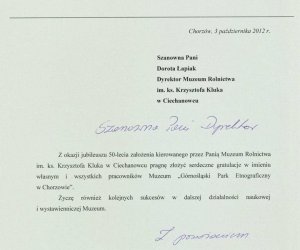 Chorzów, 3 października 2012 r.
Szanowna Pani
Dorota Łapiak
Dyrektor Muzeum Rolnictwa
im. ks. Krzysztofa Kluka
w Ciechanowcu
Szanowna Pani Dyrektor
Z okazji jubileuszu 50-lecia założenia kierowanego przez Panią Muzeum Rolnictwa
im. ks. Krzysztofa Kluka w Ciechanowcu pragnę złożyć serdeczne gratulacje w imieniu
własnym i wszystkich pracowników Muzeum „Górnośląski Park Etnograficzny
w Chorzowie".
Życzę również kolejnych sukcesów w dalszej działalności naukowej
i wystawienniczej Muzeum.
Z poważaniem